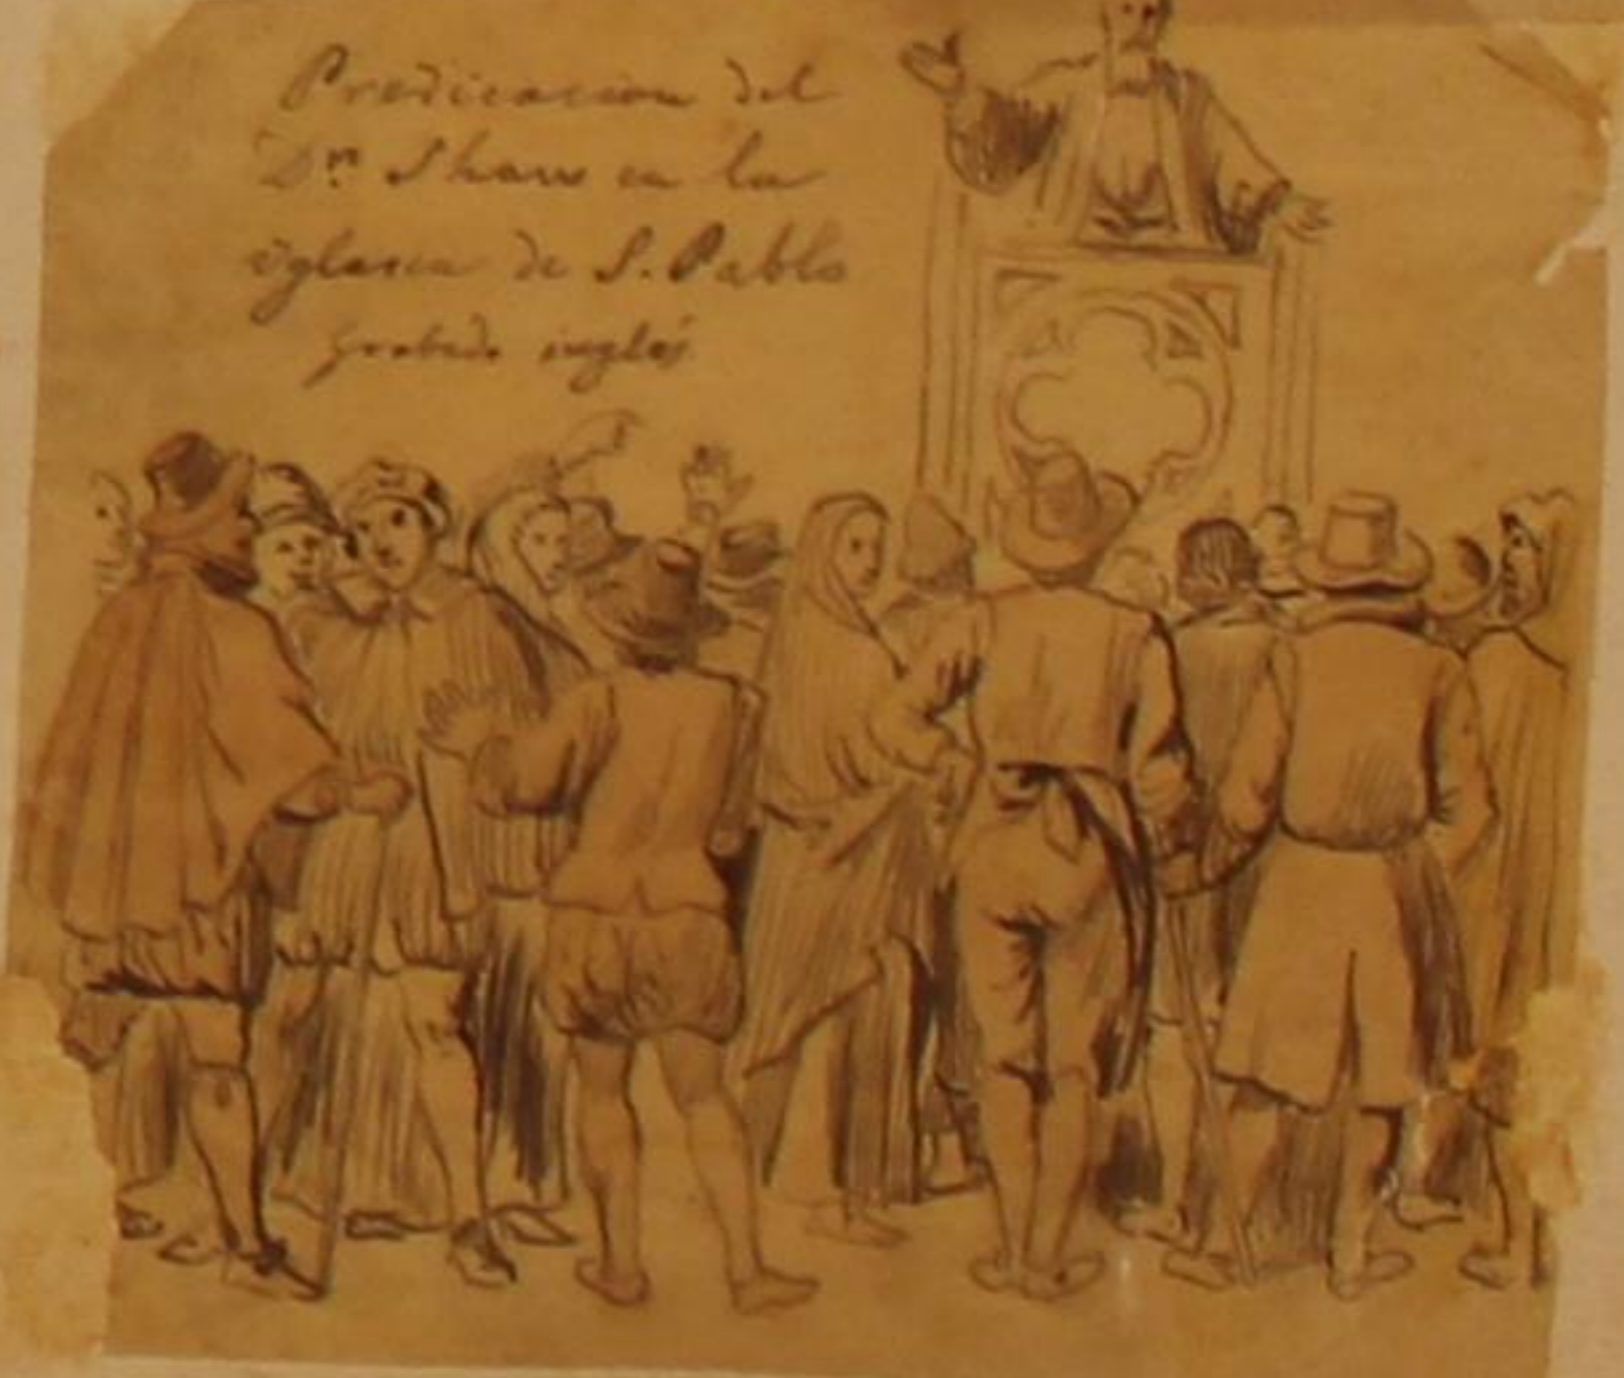 Predicacion del
Dr. Shaw en la
yglesia de S. Pablo
grabado inglés